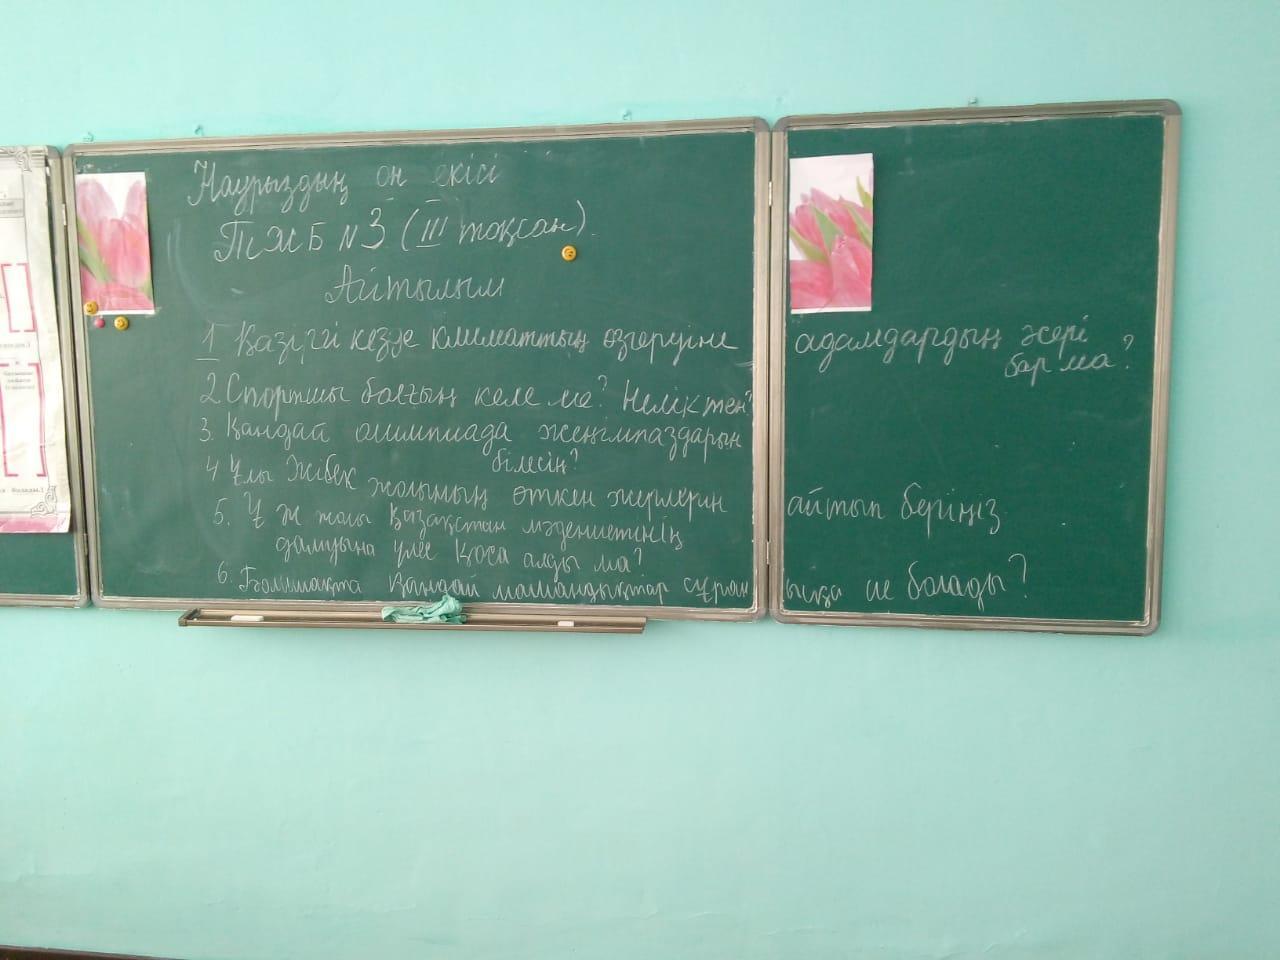 Наурыздың он екісі
ТЖБ N3 (III тоқсан).
Айтылым
1 Қазіргі кезде климаттың өзгеруіне адамдардың әсері
бар ма?
2 Спортшы болғың келе ме? Неліктен?
3. Қандай олимпиада жеңімпаздарын
білесің?
4 Ұлы Жібек жолының өткен жерлерін айтып беріңіз
5. Ұ Ж жолы Қазақстан мәдениетінің
дамуына үлес қоса алды ма?
6. Болашақта қандай мамандықтар сұранысқа ие болады?